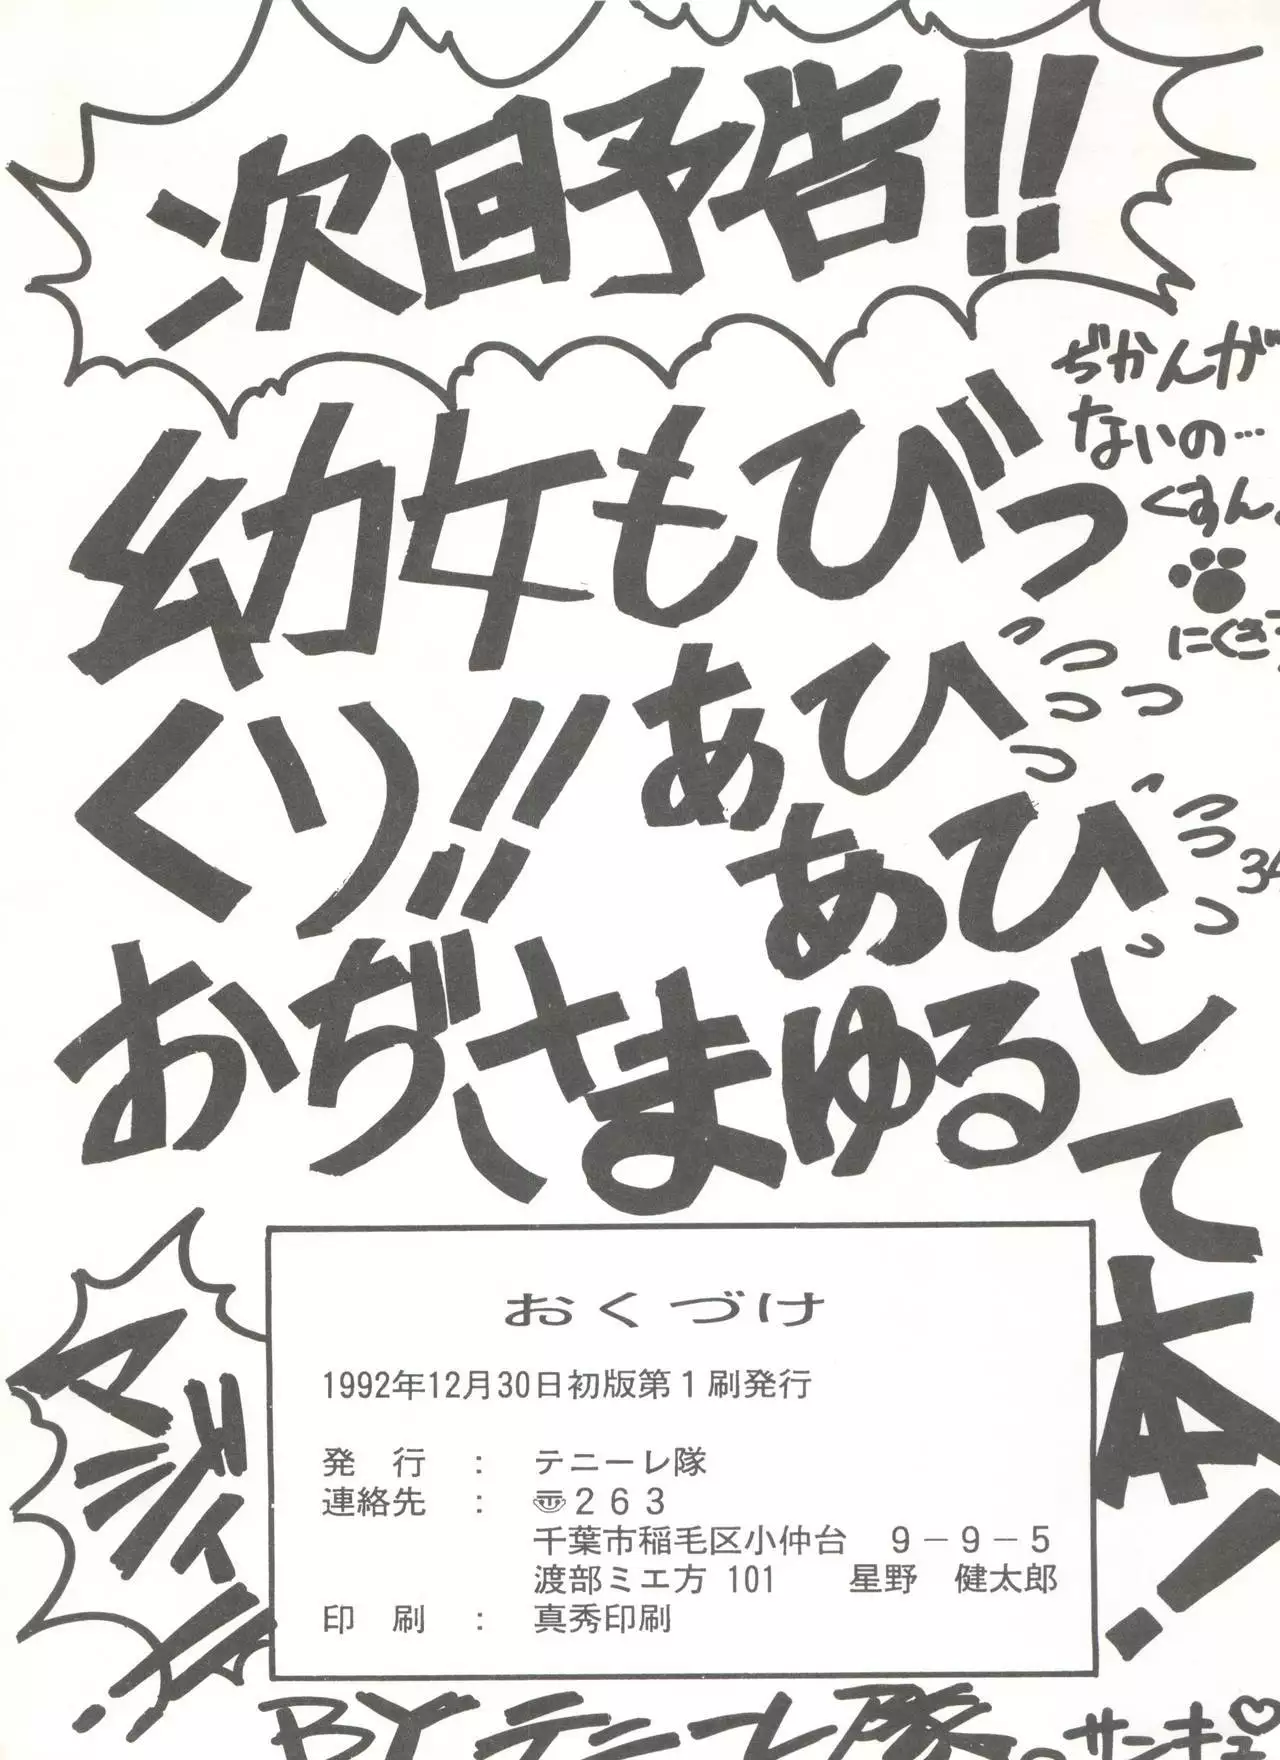 次回予告!!
ぢかんが
ないの…
くすん。
幼女もびっ
くり!!
あひ
あひ
おぢさまゆるして本!
おくづけ
1992年12月30日初版第1刷発行
発行 : テニーレ隊
連絡先 : 〠263
千葉市稲毛区小仲台 9-9-5
渡部ミエ方 101 星野 健太郎
印刷 : 真秀印刷
BYテニーレ隊
サンキュ♡